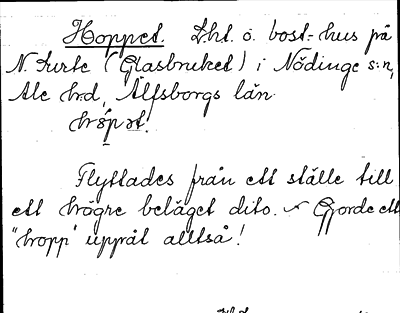 Hoppet. Lht. o. bost.-hus på
N. Surte (Glasbruket) i Nödinge s:n,
Ale h:d, Älfsborgs län.
Flyttades från ett ställe till
ett högre beläget dito. ~ Gjorde ett
"hopp" uppåt alltså!